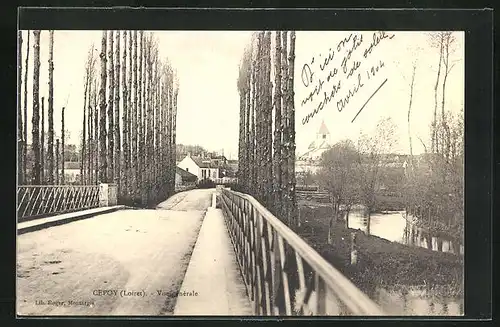 D'ici on
voit de jolis
couchers de soleil.
Avril 1904
CEPOY (Loiret). - Vue générale
Lib. Roger, Montargis